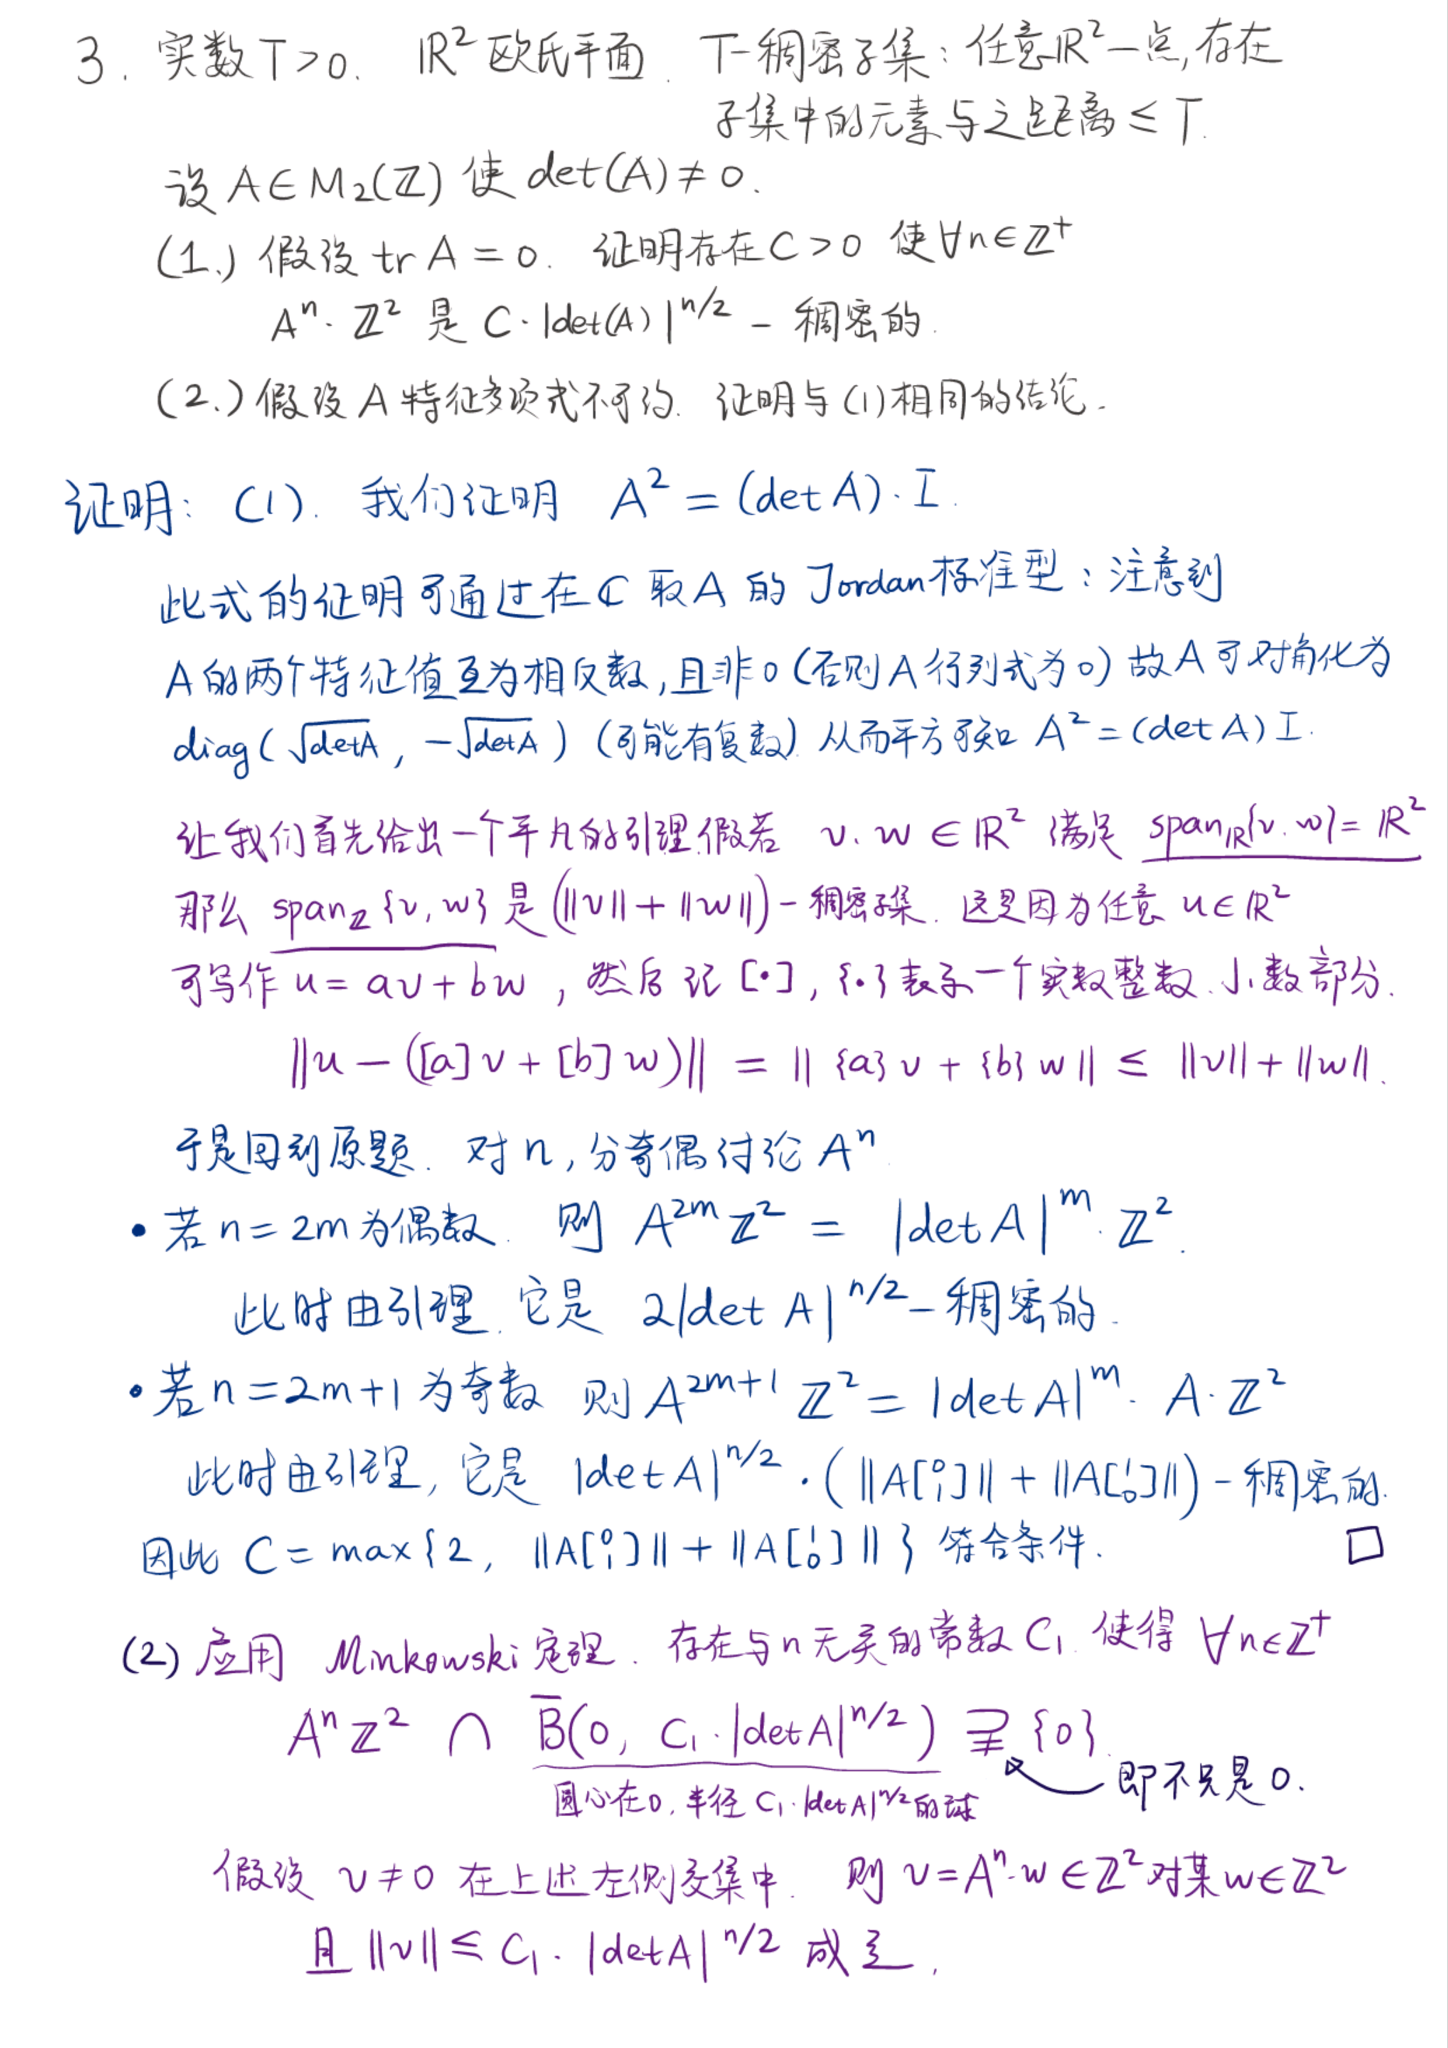 3. 实数T>0. ℝ²欧氏平面. T-稠密子集:任意ℝ²一点,存在
子集中的元素与之距离≤T.
设A∈M₂(ℤ)使det(A)≠0.
(1.)假设trA=0. 证明存在C>0使∀n∈ℤ⁺
Aⁿ·ℤ²是C·|det(A)|^{n/2}-稠密的.
(2.)假设A特征多项式不可约. 证明与(1)相同的结论.
证明:(1). 我们证明 A²=(detA)·I.
此式的证明可通过在ℂ取A的Jordan标准型:注意到
A的两个特征值互为相反数,且非0(否则A行列式为0)故A可对角化为
diag(√detA, -√detA)(可能有复数)从而平方可知A²=(detA)I.
让我们首先给出一个平凡的引理.假若 v.w∈ℝ²满足 span_ℝ{v.w}=ℝ²
那么 span_ℤ{v,w}是(‖v‖+‖w‖)-稠密子集. 这是因为任意u∈ℝ²
可写作u=av+bw,然后记[·],{·}表示一个实数整数.小数部分.
‖u-([a]v+[b]w)‖=‖{a}v+{b}w‖≤‖v‖+‖w‖.
于是回到原题. 对n,分奇偶讨论Aⁿ
• 若n=2m为偶数. 则 A^{2m}ℤ²=|detA|^m·ℤ².
此时由引理.它是 2|detA|^{n/2}-稠密的.
• 若n=2m+1为奇数 则A^{2m+1}ℤ²=|detA|^m·A·ℤ²
此时由引理,它是 |detA|^{n/2}·(‖A[⁰₁]‖+‖A[¹₀]‖)-稠密的.
因此C=max{2, ‖A[⁰₁]‖+‖A[¹₀]‖}符合条件. □
(2)应用 Minkowski定理. 存在与n无关的常数C₁.使得 ∀n∈ℤ⁺
Aⁿℤ² ∩ B̅(0, C₁·|detA|^{n/2}) ⊋ {0}.
即不只是0.
圆心在0,半径C₁·|detA|^{n/2}的球
假设 v≠0在上述左侧交集中. 则v=Aⁿ·w∈ℤ²对某w∈ℤ²
且‖v‖≤C₁·|detA|^{n/2}成立.